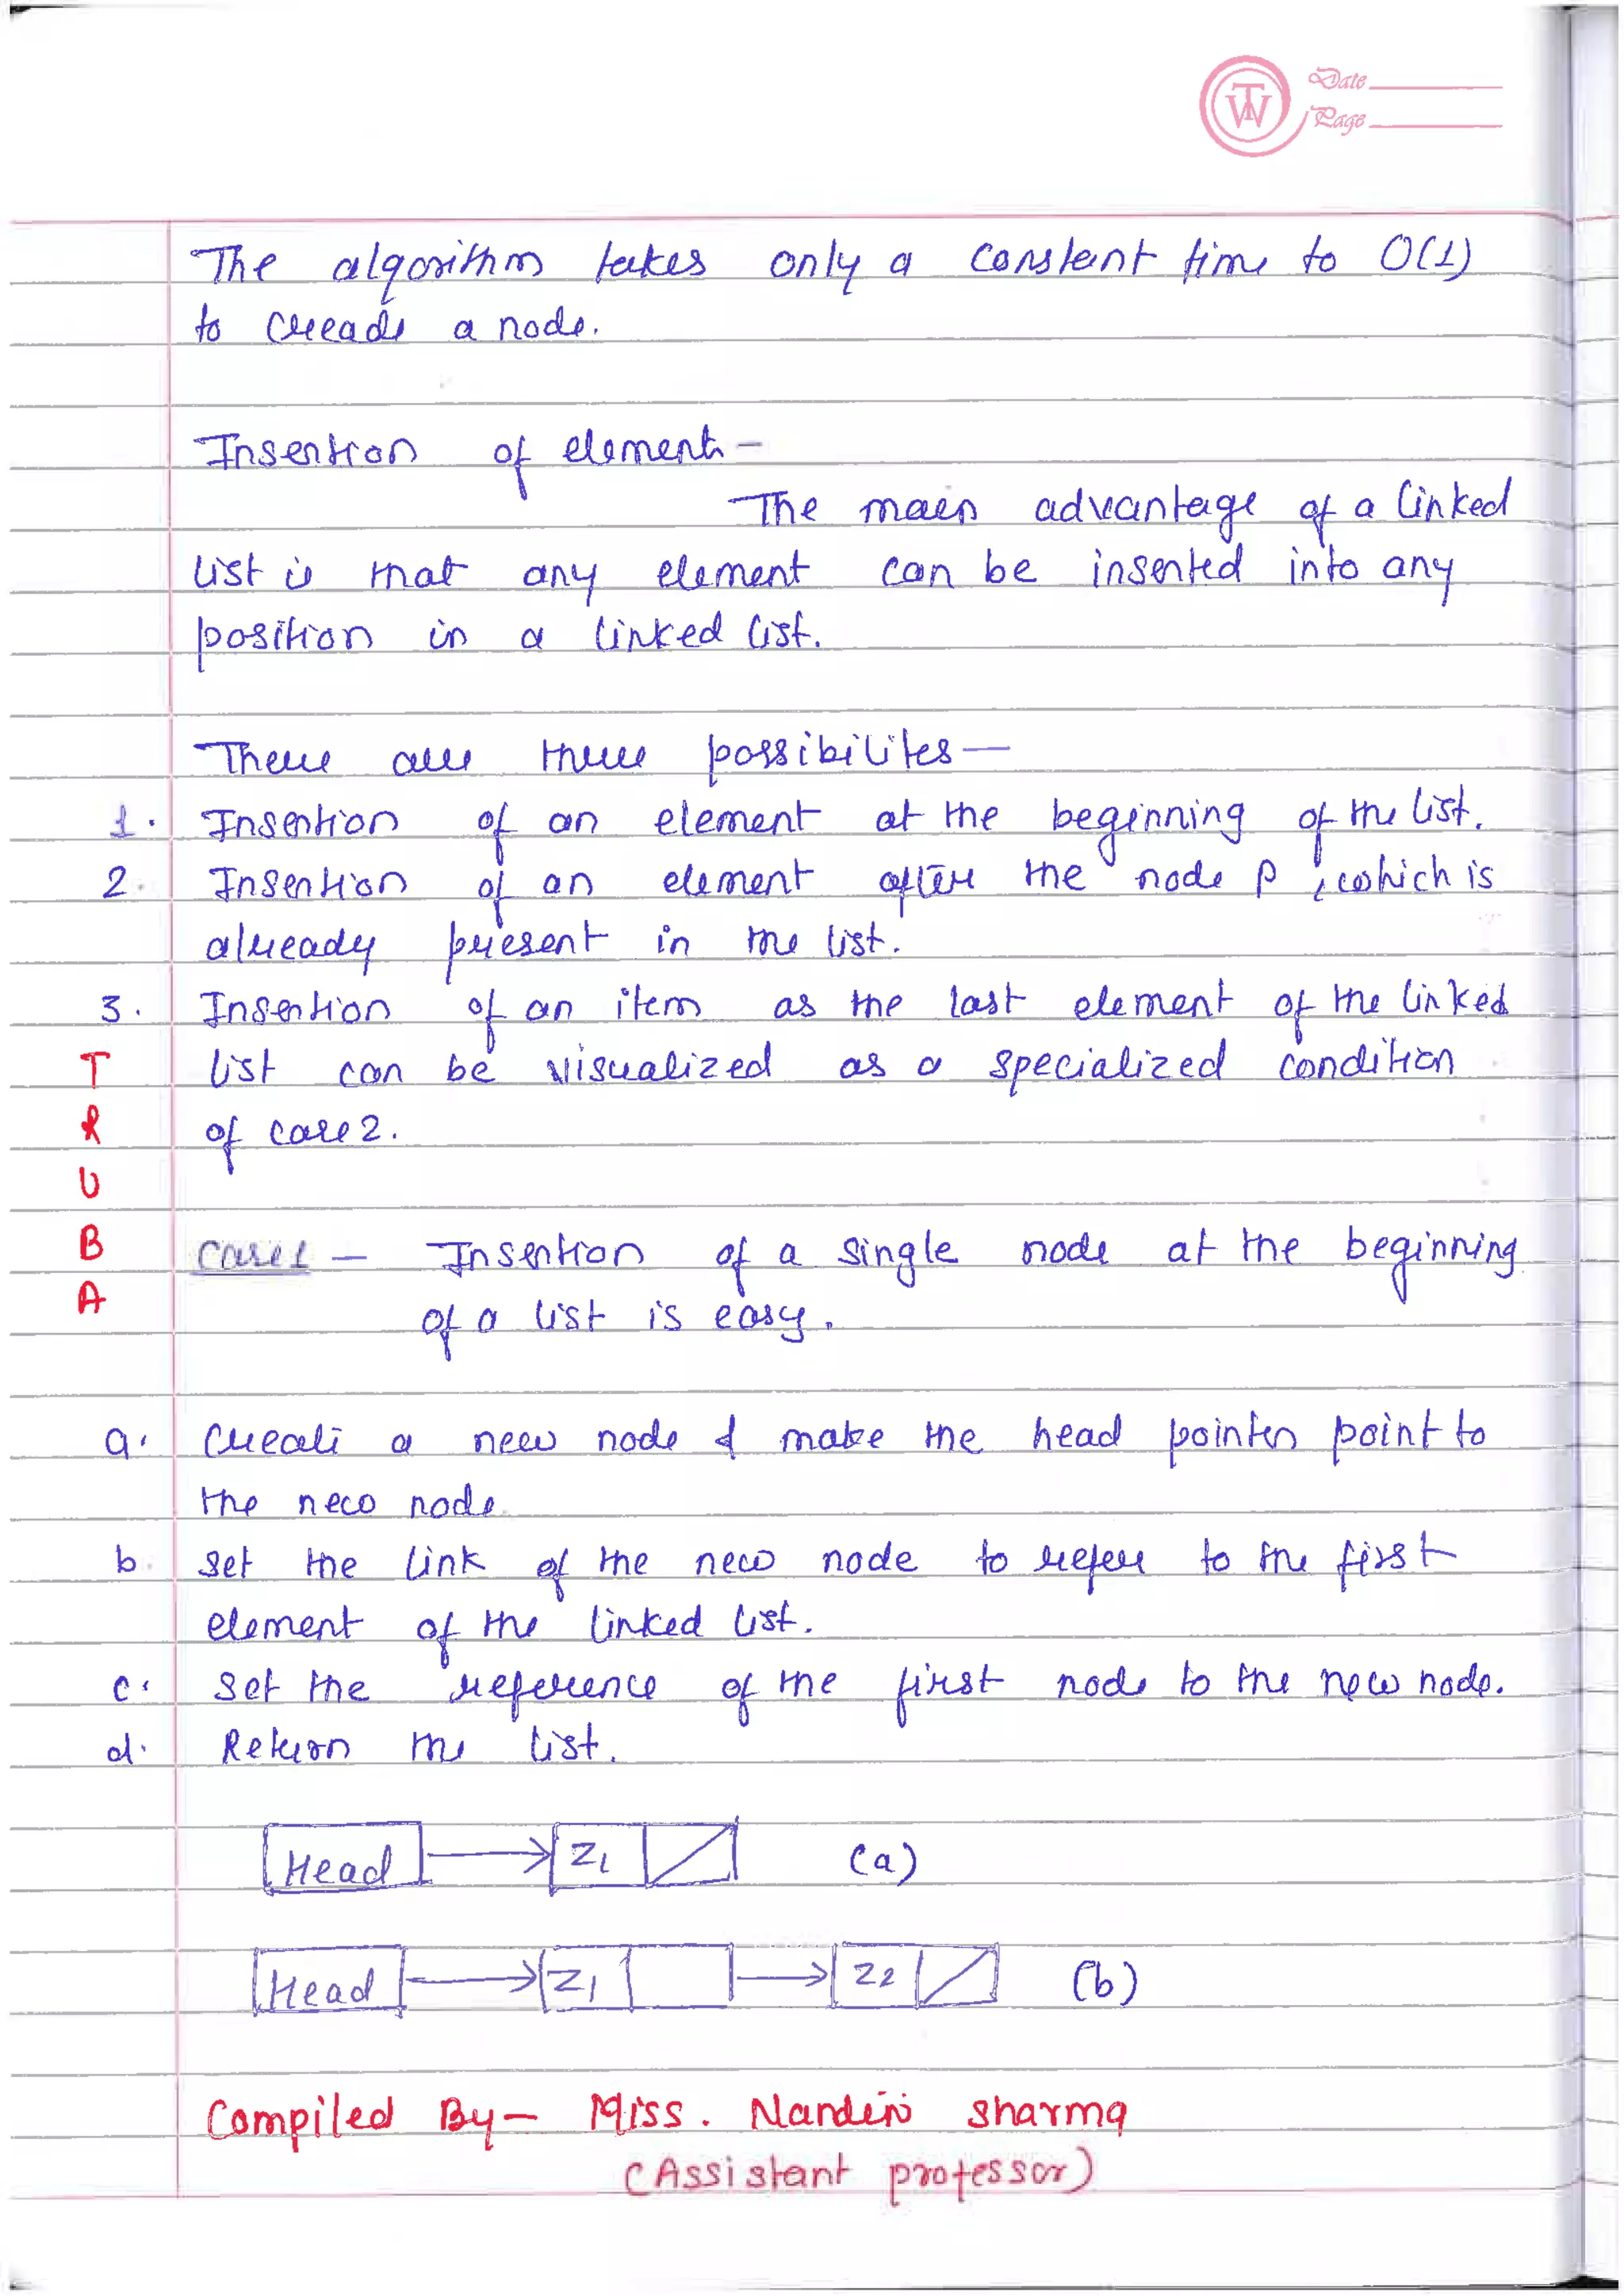 Date
Page
TW
The algorithm takes only a constant time to O(1)
to create a node.
Insertion of element -
The main advantage of a linked
list is that any element can be inserted into any
position in a linked list.
There are three possibilites -
1. Insertion of an element at the beginning of the list.
2. Insertion of an element after the node p, which is
already present in the list.
3. Insertion of an item as the last element of the linked
list can be visualized as a specialized condition
of case 2.
T
R
U
B
A
Case 1 - Insertion of a single node at the beginning
of a list is easy.
a. Create a new node & make the head pointer point to
the new node.
b. Set the link of the new node to refer to the first
element of the linked list.
c. Set the reference of the first node to the new node.
d. Return the list.
Head Z1 (a)
Head Z1 Z2 (b)
Compiled By - Miss. Nandini Sharma
(Assistant professor)